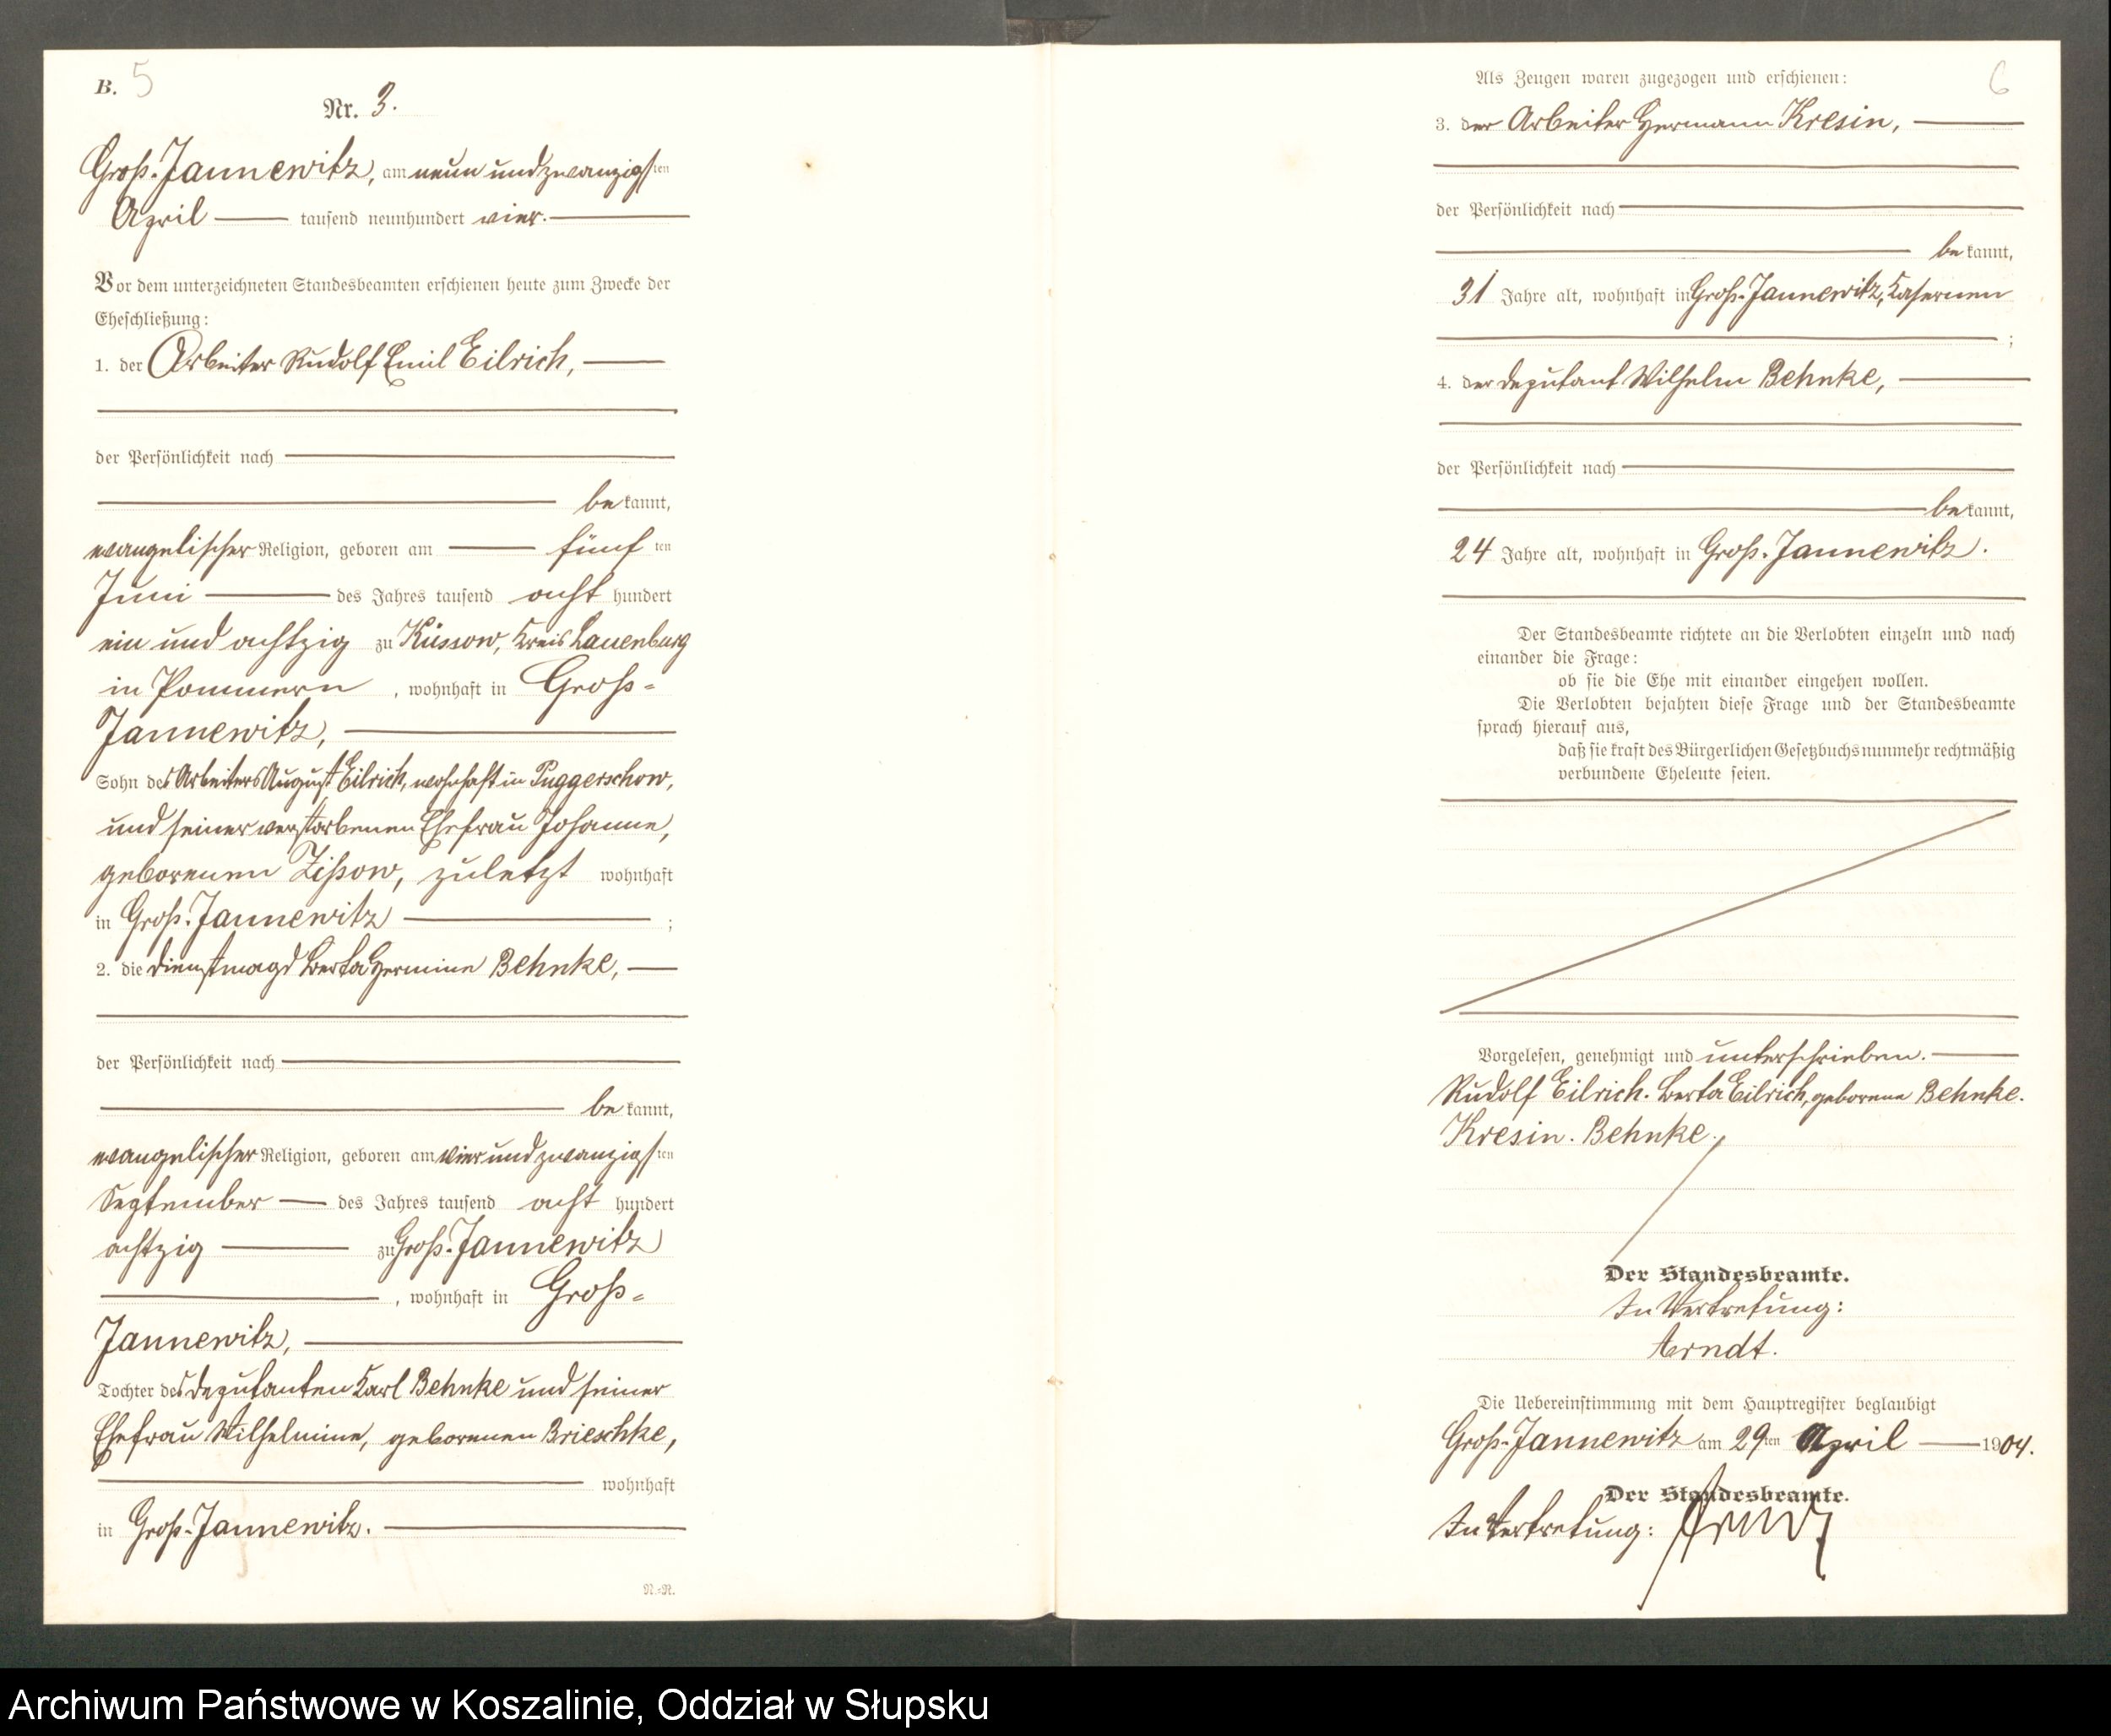 B. 5
Nr. 3.
Groß-Jannewitz, am neun und zwanzigsten
April tausend neunhundert vier.
Vor dem unterzeichneten Standesbeamten erschienen heute zum Zwecke der
Eheschließung:
1. der Arbeiter Rudolf Emil Eilrich,
der Persönlichkeit nach
be kannt,
evangelischer Religion, geboren am fünf ten
Juni des Jahres tausend acht hundert
ein und achtzig zu Küssow, Kreis Lauenburg
in Pommern, wohnhaft in Groß-
Jannewitz,
Sohn des Arbeiters August Eilrich, wohnhaft in Puggerschow,
und seiner verstorbenen Ehefrau Johanne,
geborenen Zißow, zuletzt wohnhaft
in Groß-Jannewitz ;
2. die Dienstmagd Berta Hermine Behnke,
der Persönlichkeit nach
be kannt,
evangelischer Religion, geboren am vier und zwanzigsten
September des Jahres tausend acht hundert
achtzig zu Groß-Jannewitz
, wohnhaft in Groß-
Jannewitz,
Tochter des Deputanten Karl Behnke und seiner
Ehefrau Wilhelmine, geborenen Brieschke,
wohnhaft
in Groß-Jannewitz.
N.-N.
6
Als Zeugen waren zugezogen und erschienen:
3. der Arbeiter Hermann Kresin,
der Persönlichkeit nach
be kannt,
31 Jahre alt, wohnhaft in Groß-Jannewitz, Kasernen
;
4. der Deputant Wilhelm Behnke,
der Persönlichkeit nach
be kannt,
24 Jahre alt, wohnhaft in Groß-Jannewitz.
Der Standesbeamte richtete an die Verlobten einzeln und nach
einander die Frage:
ob sie die Ehe mit einander eingehen wollen.
Die Verlobten bejahten diese Frage und der Standesbeamte
sprach hierauf aus,
daß sie kraft des Bürgerlichen Gesetzbuchs nunmehr rechtmäßig
verbundene Eheleute seien.
Vorgelesen, genehmigt und unterschrieben.
Rudolf Eilrich. Berta Eilrich, geborene Behnke.
Kresin. Behnke.
Der Standesbeamte.
In Vertretung:
Arndt.
Die Uebereinstimmung mit dem Hauptregister beglaubigt
Groß-Jannewitz am 29ten April 1904.
Der Standesbeamte.
In Vertretung: Arndt
Archiwum Państwowe w Koszalinie, Oddział w Słupsku